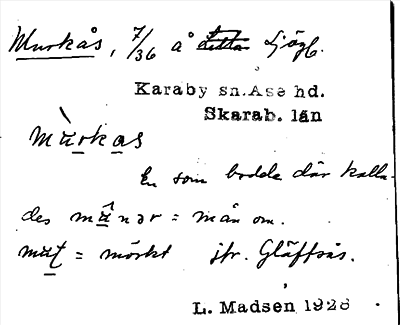 Murkås, 7/36 å Ljögl.
Karaby sn. Åse hd.
Skarab. län
mùrkas
En som bodde där kalla-
des mânər = mån om.
mut = mörkt jfr. Gläffsås.
L. Madsen 1928